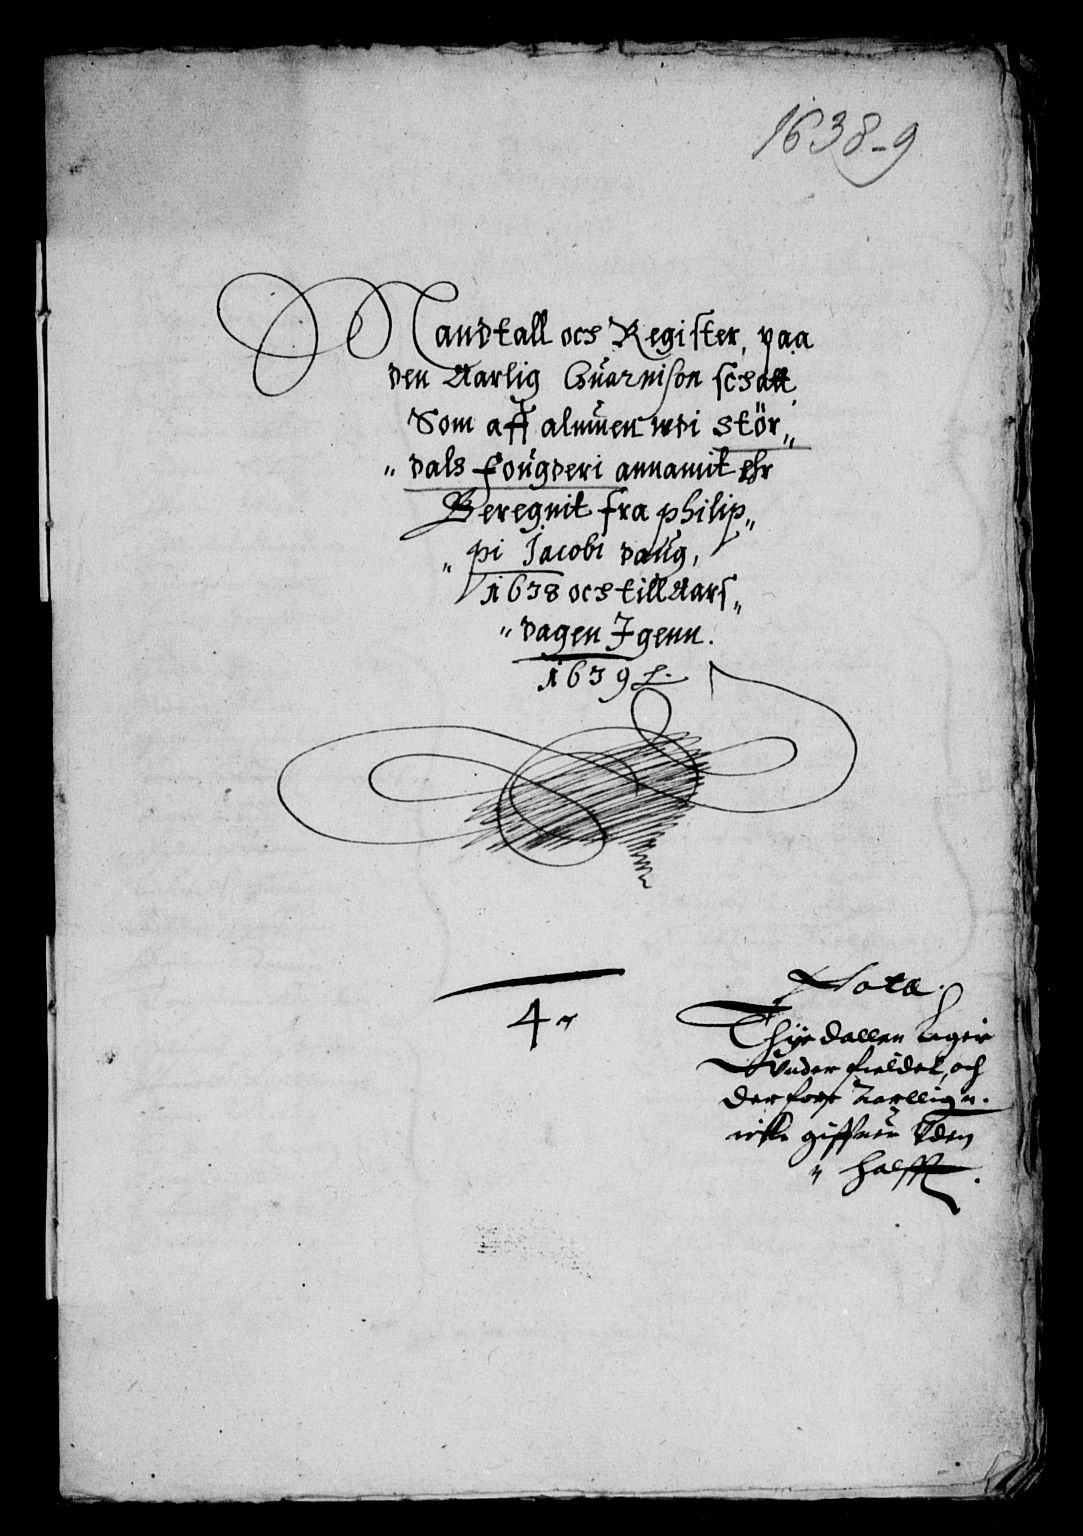 1638-9
Mandtall och Register, paa
den Aarlig Guarnison schatt
Som aff almuen wdi Stör„
„ dals fougderi annamit ehr
Beregnit fra philip„
„ pi Jacobi daug,
1638 och till Aars„
„ dagen Igenn.
1639
4
Nota.
Thyedallen liger
Under fieldet, och
der fore Aarllig„
icke giffuer uden
„ halfft.